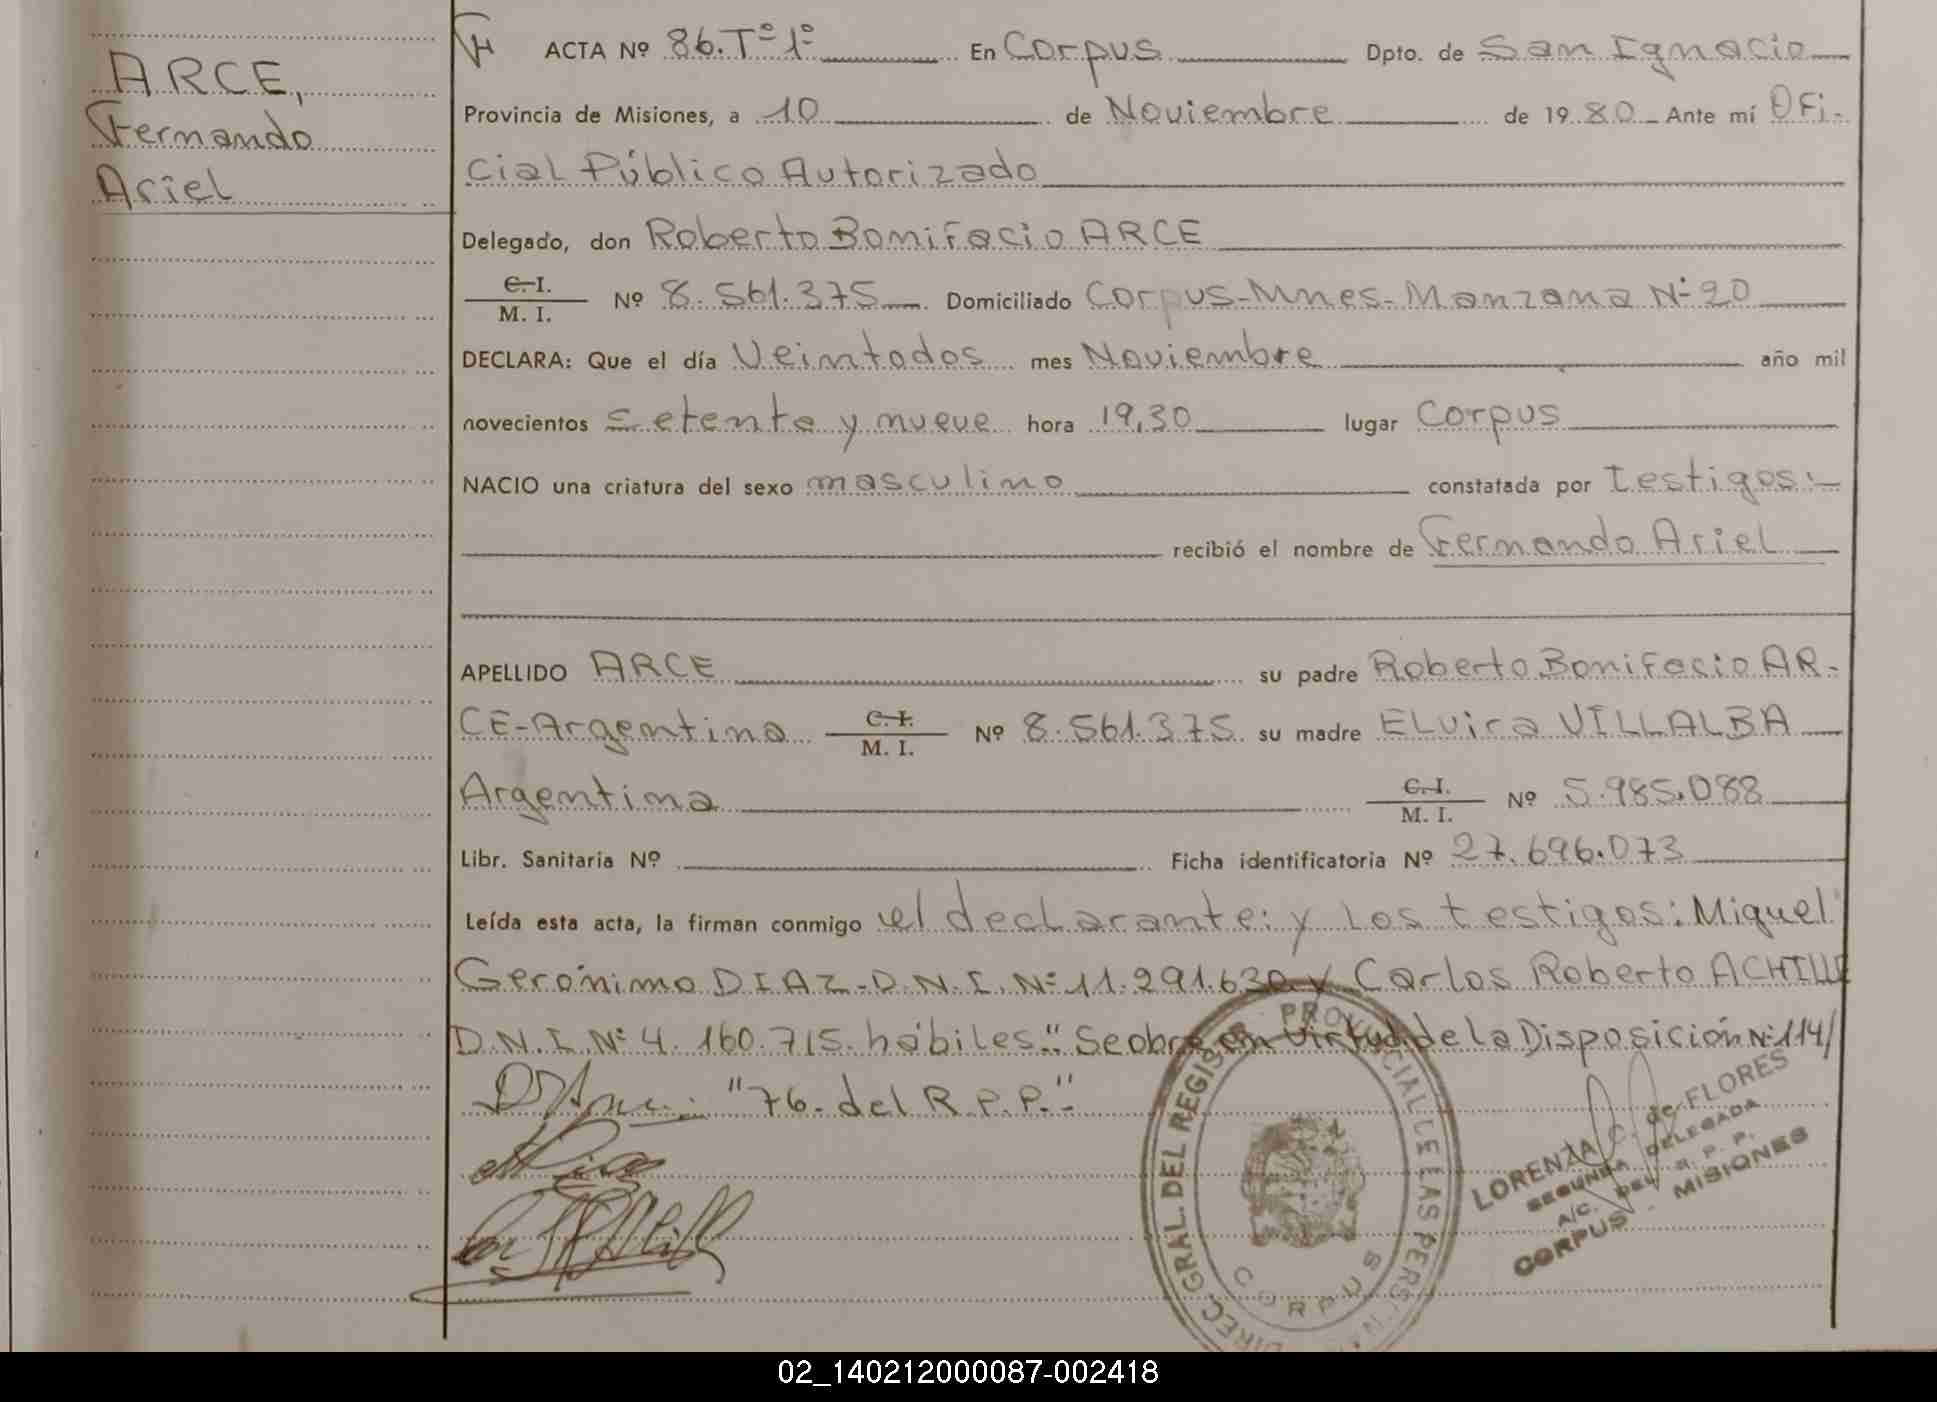 ARCE,
Fernando
Ariel
ACTA Nº 86.Tº 1º En Corpus Dpto. de San Ignacio
Provincia de Misiones, a 10 de Noviembre de 1980 Ante mí Ofi-
cial Público Autorizado
Delegado, don Roberto Bonifacio ARCE
C.I. / M. I. Nº 8.561.375 Domiciliado Corpus-Mnes-Manzana Nº 20
DECLARA: Que el día Veintodos mes Noviembre año mil
novecientos setenta y nueve hora 19,30 lugar Corpus
NACIO una criatura del sexo masculino constatada por Testigos:-
recibió el nombre de Fernando Ariel
APELLIDO ARCE su padre Roberto Bonifacio AR-
CE-Argentina C.I. / M. I. Nº 8.561.375 su madre ELvira VILLALBA
Argentina C.I. / M. I. Nº 5.985.088
Libr. Sanitaria Nº Ficha identificatoria Nº 27.696.073
Leída esta acta, la firman conmigo el declarante: y Los testigos: Miguel
Gerónimo DIAZ-D.N.I. Nº 11.291.630 y Carlos Roberto ACHILLE
D.N.I. Nº 4.160.715. hábiles." Se obra en Virtud de la Disposición Nº 114/
"76. del R.P.P."-
DIREC. GRAL. DEL REGISTR. PROVINCIAL DE LAS PERSONAS
CORPUS
LORENZA C. de FLORES
SEGUNDA DELEGADA
A/C. DEL R. P. P.
CORPUS - MISIONES
02_140212000087-002418